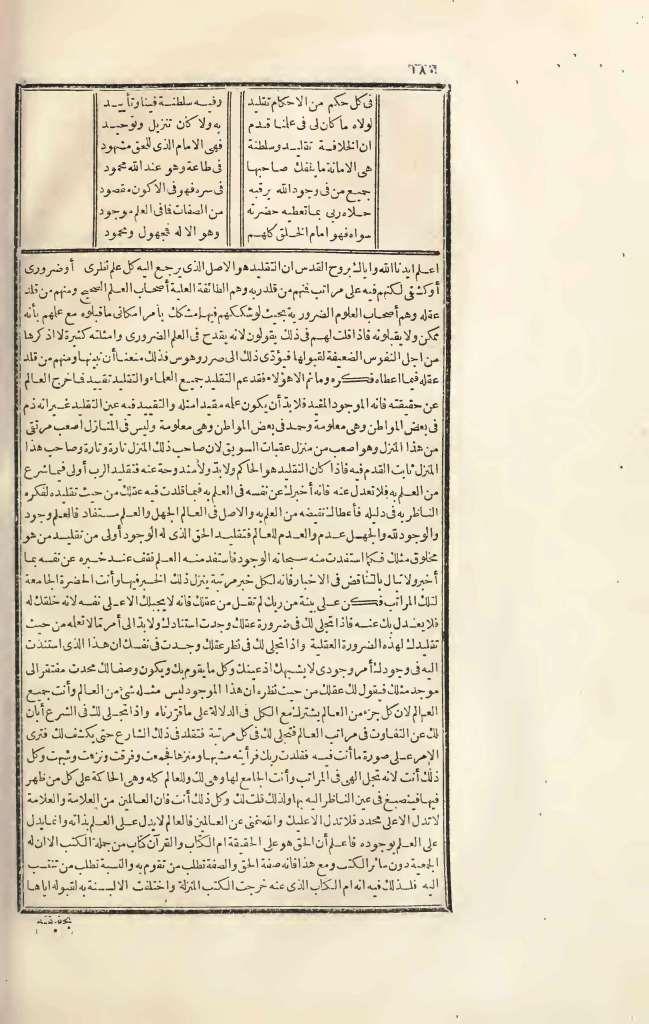 ١٨٥
فى كل حكم من الاحكام تقليد وفيه سلطنة فينا وتأييد
لولاه ما كان لى فى علنا قدم به ولا كان تنزيل وتوحيد
ان الخلافة تقليد وسلطنة فهى الامام الذى للحق مشهود
هى الامانة ما ينفك صاحبها فى طاعة وهو عند الله محمود
جميع من فى وجود الله يرقبه فى سره فهو فى الاكون مقصود
حلاه ربى بما تعطيه حضرته من الصفات فما فى العلم موجود
سواه فهو امام الخلق كلهم وهو الاله فمجهول ومحمود
اعلم ايدنا الله واياك بروح القدس ان التقليد هو الاصل الذى يرجع اليه كل علم نظرى أوضرورى
أو كشفى لكنهم فيه على مراتب فمنهم من قلد ربه وهم الطائفة العلية أصحاب العلم الصحيح ومنهم من قلد
عقله وهم أصحاب العلوم الضرورية بحيث لو شككهم فيها مشكك بأمر امكانى ما قبلوه مع علمهم بأنه
ممكن ولا يقبلونه فاذا قلت لهم فى ذلك يقولون لانه يقدح فى العلم الضرورى وامثلته كثيرة لا اذكرها
من اجل النفوس الضعيفة لقبولها فيؤدى ذلك الى ضرر وهوس فذلك منعنا أن نبينها ومنهم من قلد
عقله فيما اعطاه فكره وما ثم الا هؤلاء فقد عم التقليد جميع العلماء والتقليد تقييد فما خرج العالم
عن حقيقته فانه الموجود المقيد فلا بد أن يكون علمه مقيدا مثله والتقييد فيه عين التقليد غير انه ذم
فى بعض المواطن وهى معلومة وحمد فى بعض المواطن وهى معلومة وليس فى المنازل اصعب مرتقى
من هذا المنزل وهو اصعب من منزل عقبات السويق لان صاحب ذلك المنزل تارة وتارة وصاحب هذا
المنزل ثابت القدم فيه فاذا كان التقليد هو الحاكم ولا بد ولا مندوحة عنه فتقليد الرب أولى فيما شرع
من العلم به فلا تعدل عنه فانه أخبرك عن نفسه فى العلم به فيما قلدت فيه عقلك من حيث تقليده لفكره
الناظر به فى دليله فأعطاك نقيضه من العلم به والاصل فى العالم الجهل والعلم مستفاد فالعلم وجود
والوجود لله والجهل عدم والعدم للعالم فتقليد الحق الذى له الوجود أولى من تقليد من هو
مخلوق مثلك فكما استفدت منه سبحانه الوجود فاستفد منه العلم فقف عند خبره عن نفسه بما
أخبر ولا تبال بالتناقض فى الاخبار فانه لكل خبر مرتبة ينزل ذلك الخبر فيها وأنت الحضرة الجامعة
لتلك المراتب فكن على بينة من ربك لم تقل من عقلك فانه لا يحيلك الا على نفسه لانه خلقك له
فلا يعدل بك عنه فاذا تجلى لك فى ضرورة عقلك وجدت استنادك ولا بد الى أمر ما لا تعلمه من حيث
تقليدك لهذه الضرورة العقلية واذا تجلى لك فى نظر عقلك وجدت فى نفسك ان هذا الذى استندت
اليه فى وجودك أمر وجودى لا يشبهك اذ عينك وكل ما يقوم بك ويكون وصفا لك محدث مفتقر الى
موجد مثلك فيقول لك عقلك من حيث نظره ان هذا الموجود ليس مثله شئ من العالم وأنت جميع
العالم لان كل جزء من العالم يشترك مع الكل فى الدلالة على ما قررناه واذا تجلى لك فى الشرع أبان
لك عن التفاوت فى مراتب العالم فتجلى لك فى كل مرتبة فتقلد فى ذلك الشارع حتى يكشف لك فترى
الامر على صورة ما أنت فيه فقلدت ربك فرأيته مشبها ومنزها فجمعت وفرقت ونزهت وشبهت وكل
ذلك أنت لانه تجلى الهى فى المراتب وأنت الجامع لها وهى لك وللعالم كله وهى الحاكمة على كل من ظهر
فيها فينصبغ فى عين الناظر اليه بها ولذلك قلت لك وكل ذلك أنت فان العالمين من العلامة والعلامة
لا تدل الا على محدد فلا تدل الا عليك والله غنى عن العالمين فالعالم لا يدل على العلم بذاته وانما يدل
على العلم بوجوده فاعلم أن الحق هو على الحقيقة ام الكتاب والقرآن كتاب من جملة الكتب الا ان له
الجمعية دون سائر الكتب ومع هذا فانه صفة الحق والصفة تطلب من تقوم به والنسبة تطلب من تنتسب
اليه فلذلك فيه انه ام الكتاب الذى عنه خرجت الكتب المنزلة واختلفت الالسنة به لقبوله اياها
بحقيقته